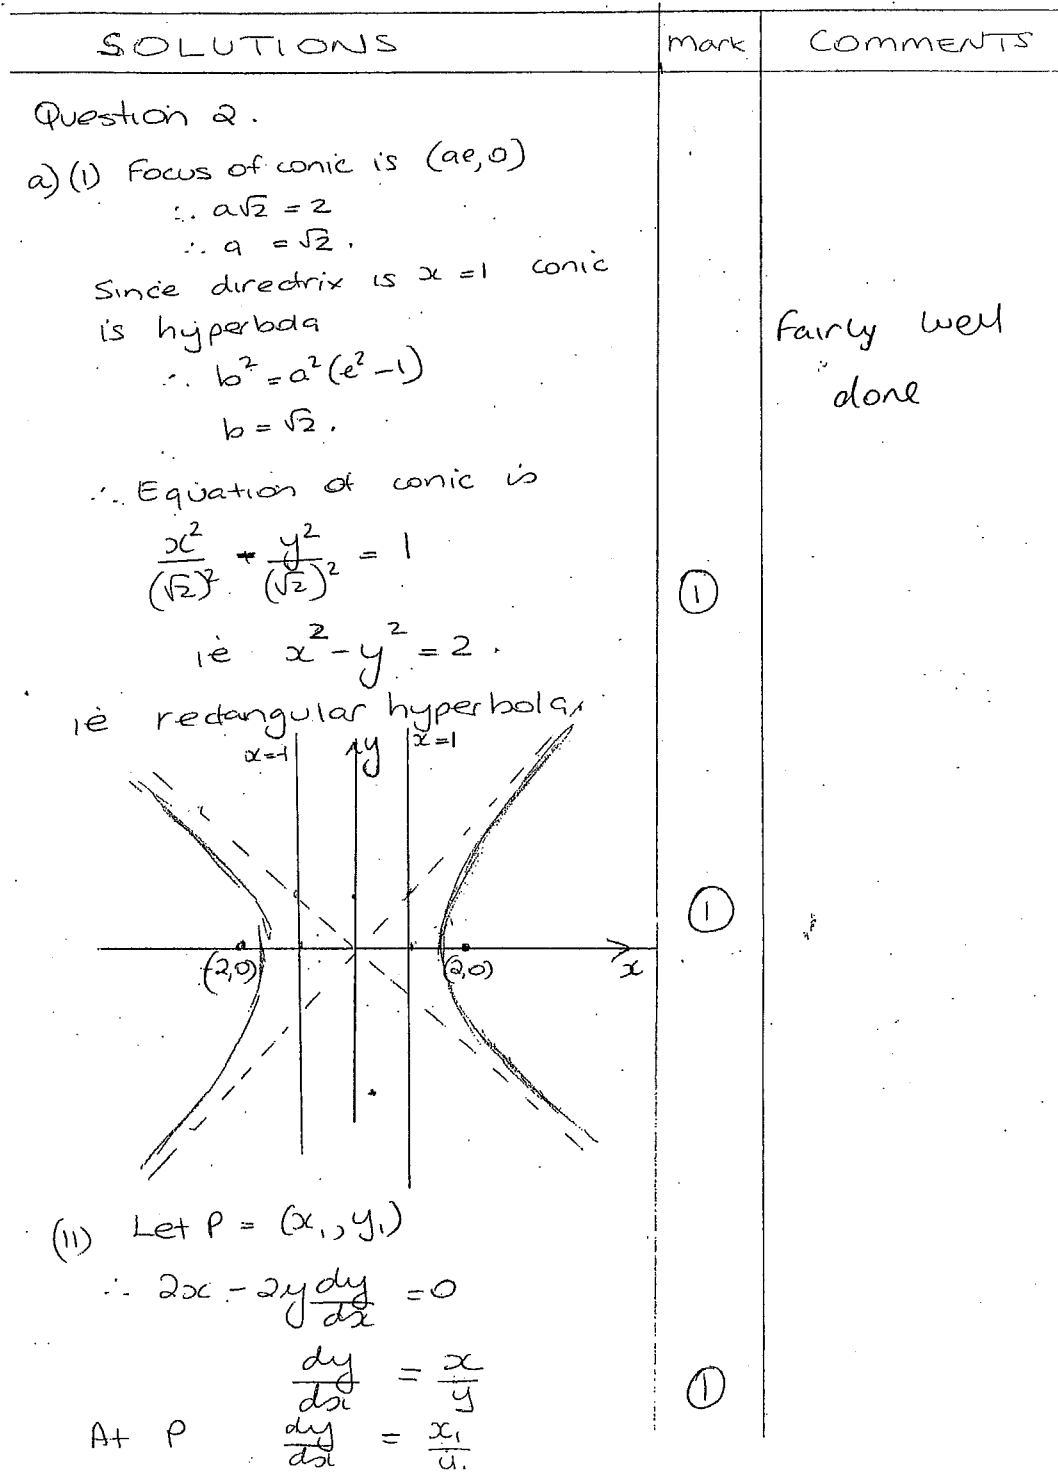 SOLUTIONS mark COMMENTS
Question 2.
a) (1) Focus of conic is (ae, 0)
∴ a√2 = 2
∴ a = √2.
Since directrix is x = 1 conic
is hyperbola
∴ b² = a²(e² - 1)
b = √2.
Fairly well
done
∴ Equation of conic is
x²/(√2)² - y²/(√2)² = 1
①
ie x² - y² = 2.
ie rectangular hyperbola,
x=-1 y x=1
①
(-2,0) (2,0) x
(11) Let P = (x₁, y₁)
∴ 2x - 2y dy/dx = 0
dy/dx = x/y
①
At P dy/dx = x₁/y₁